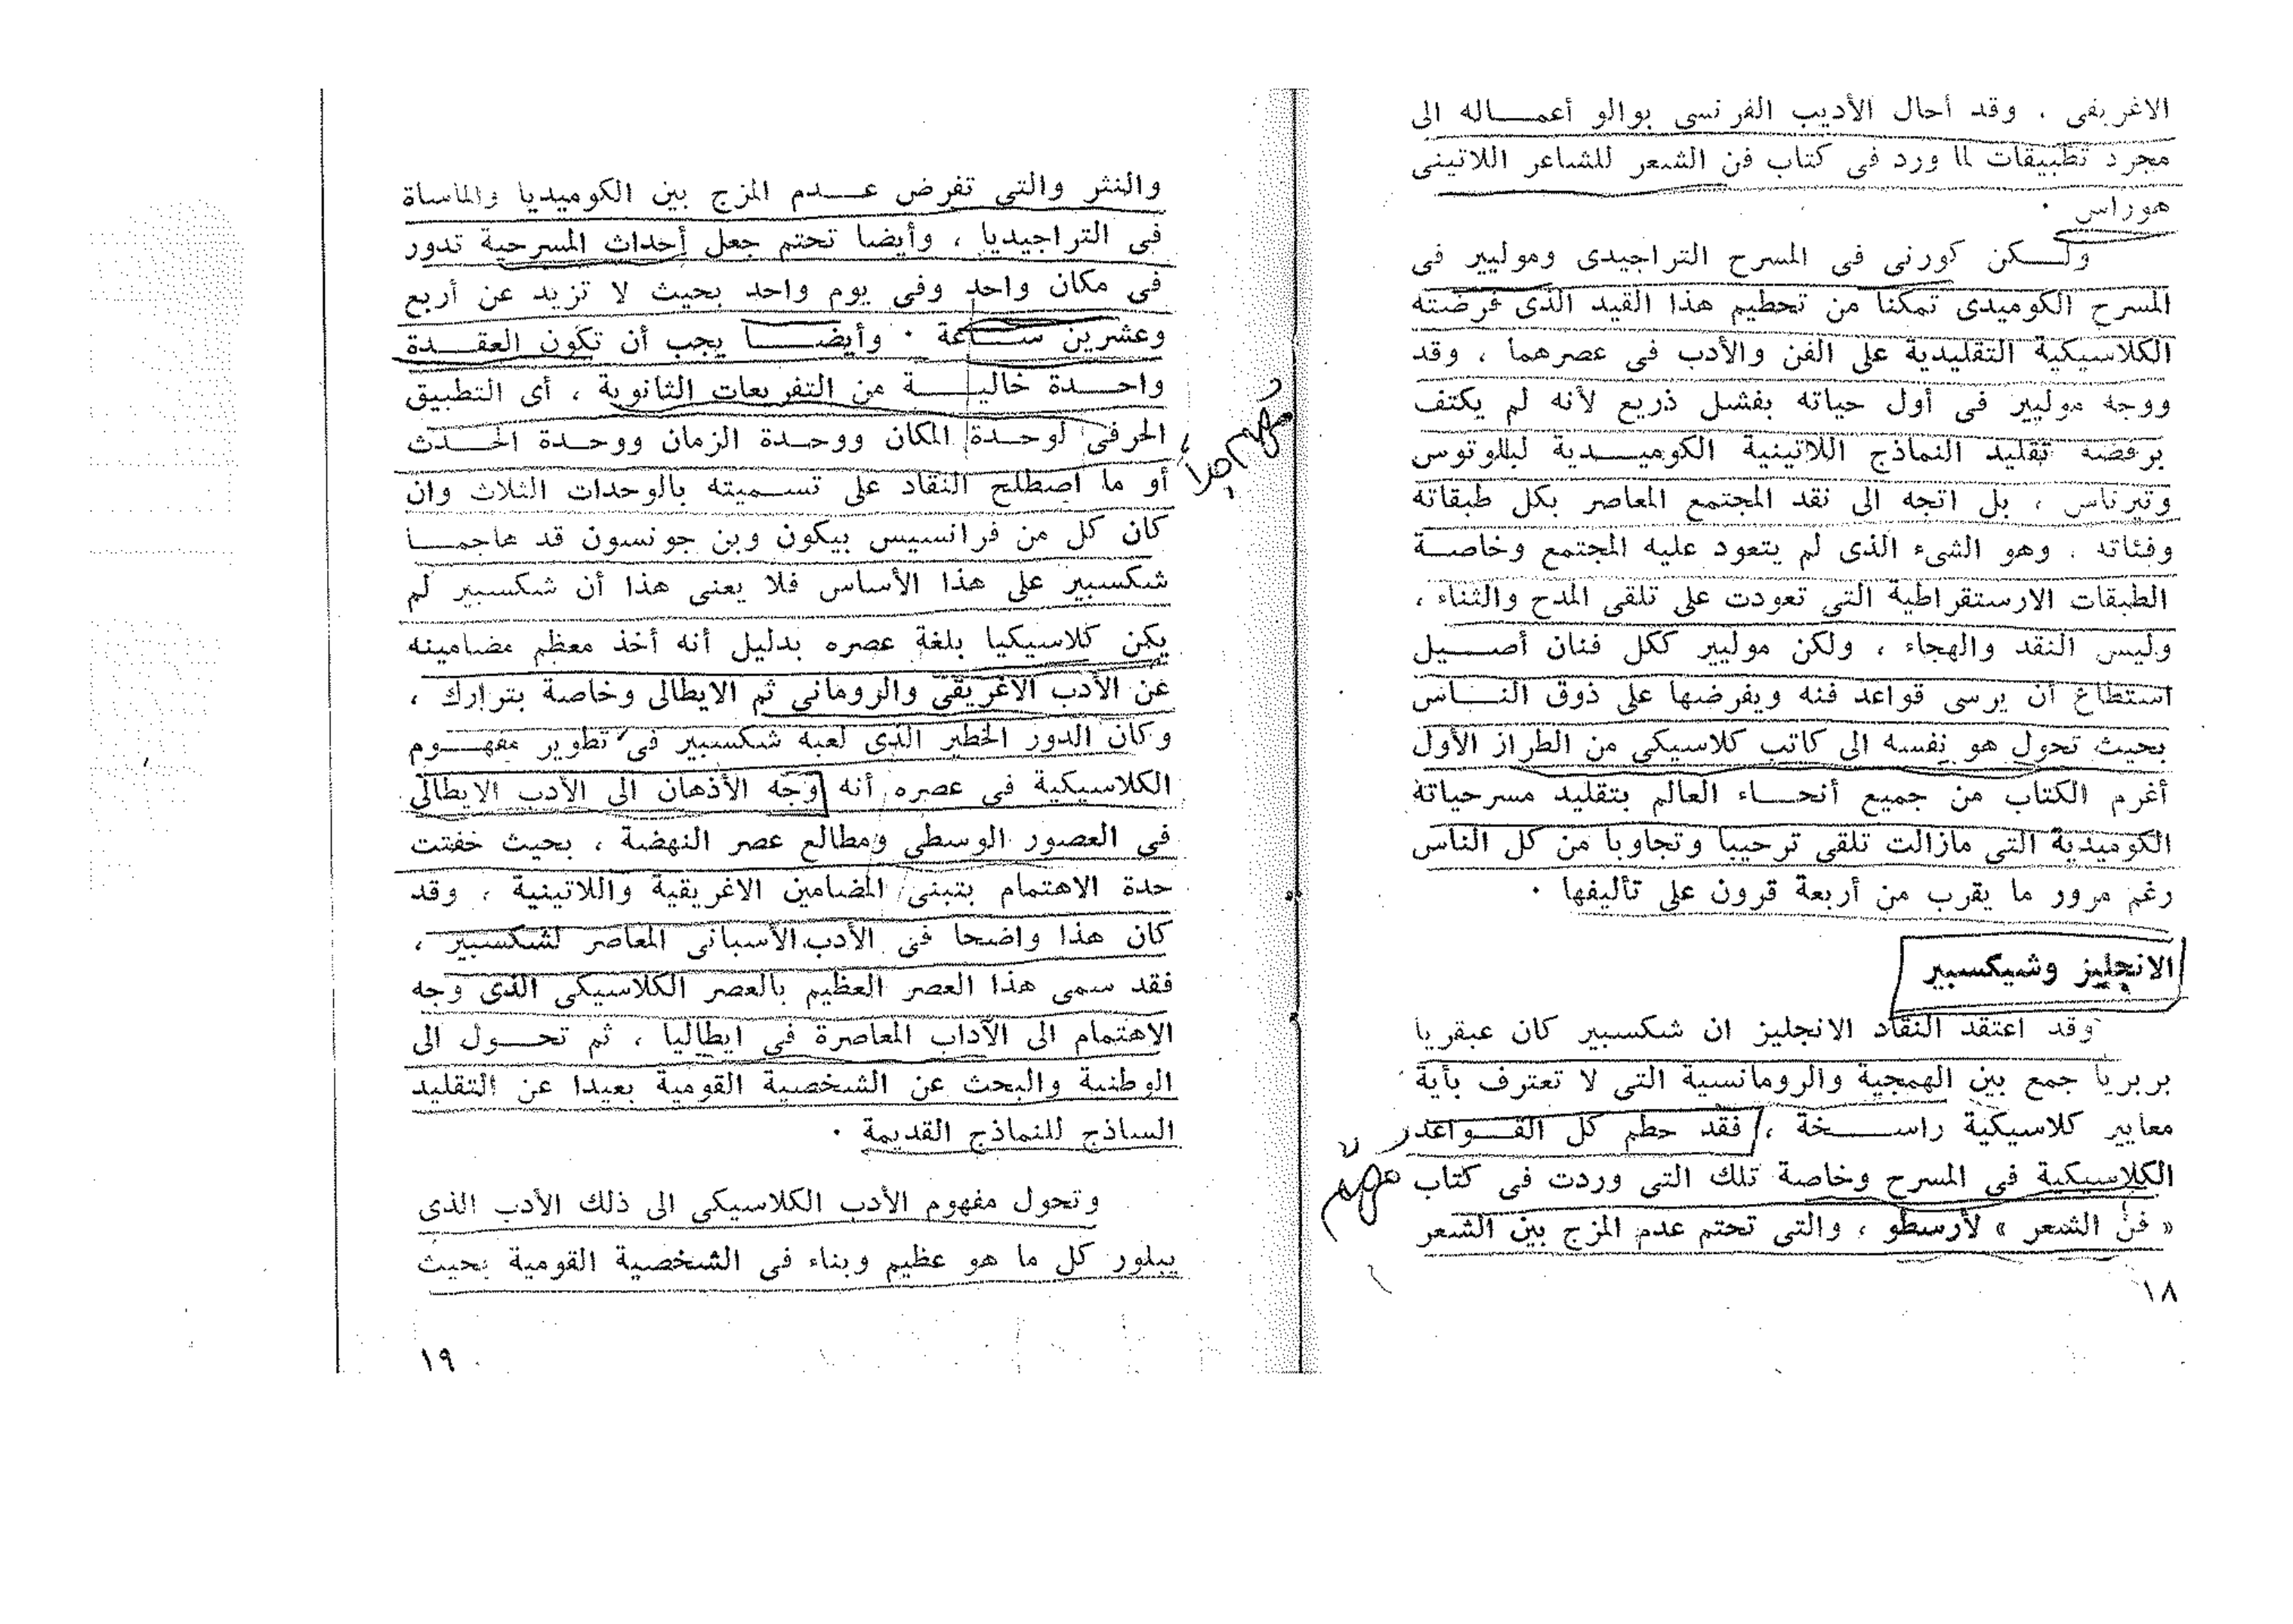 الاغريقى . وقد أحال الأديب الفرنسى بوالو أعمـــاله الى
مجرد تطبيقات لما ورد فى كتاب فن الشعر للشاعر اللاتينى
هوراس .
ولـــكن كورنى فى المسرح التراجيدى وموليير فى
المسرح الكوميدى تمكنا من تحطيم هذا القيد الذى فرضته
الكلاسيكية التقليدية على الفن والأدب فى عصرهما ، وقد
ووجه موليير فى أول حياته بفشل ذريع لأنه لم يكتف
برفضه تقليد النماذج اللاتينية الكوميـــدية لبلوتوس
وتيرناس ، بل اتجه الى نقد المجتمع المعاصر بكل طبقاته
وفئاته . وهو الشىء الذى لم يتعود عليه المجتمع وخاصـة
الطبقات الارستقراطية التى تعودت على تلقى المدح والثناء ،
وليس النقد والهجاء ، ولكن موليير ككل فنان أصـــيل
استطاع أن يرسى قواعد فنه ويفرضها على ذوق النـــاس
بحيث تحول هو نفسه الى كاتب كلاسيكى من الطراز الأول
أغرم الكتاب من جميع أنحـــاء العالم بتقليد مسرحياته
الكوميدية التى مازالت تلقى ترحيبا وتجاوبا من كل الناس
رغم مرور ما يقرب من أربعة قرون على تأليفها .
الانجليز وشيكسبير
وقد اعتقد النقاد الانجليز ان شكسبير كان عبقريا
بربريا جمع بين الهمجية والرومانسية التى لا تعترف بأية
معايير كلاسيكية راســـخة ، فقد حطم كل القـــواعد
الكلاسيكية فى المسرح وخاصة تلك التى وردت فى كتاب
« فن الشعر » لأرسطو ، والتى تحتم عدم المزج بين الشعر
مهم
١٨
والنثر والتى تفرض عـــدم المزج بين الكوميديا والمأساة
فى التراجيديا ، وأيضا تحتم جعل أحداث المسرحية تدور
فى مكان واحد وفى يوم واحد بحيث لا تزيد عن أربع
وعشرين ســـاعة . وأيضـــا يجب أن تكون العقـــدة
واحـــدة خاليـــة من التفريعات الثانوية ، أى التطبيق
الحرفى لوحـدة المكان ووحـدة الزمان ووحـدة الحـــدث
أو ما اصطلح النقاد على تســـميته بالوحدات الثلاث وان
كان كل من فرانسيس بيكون وبن جونسون قد هاجمـــا
شكسبير على هذا الأساس فلا يعنى هذا أن شكسبير لم
يكن كلاسيكيا بلغة عصره بدليل أنه أخذ معظم مضامينه
عن الأدب الاغريقى والرومانى ثم الايطالى وخاصة بترارك ،
وكان الدور الخطير الذى لعبه شكسبير فى تطوير مفهـــوم
الكلاسيكية فى عصره أنه وجه الأذهان الى الأدب الايطالى
فى العصور الوسطى ومطالع عصر النهضة ، بحيث خفتت
حدة الاهتمام بتبنى المضامين الاغريقية واللاتينية . وقد
كان هذا واضحا فى الأدب الأسبانى المعاصر لشكسبير ،
فقد سمى هذا العصر العظيم بالعصر الكلاسيكى الذى وجه
الاهتمام الى الآداب المعاصرة فى ايطاليا ، ثم تحـــول الى
الوطنية والبحث عن الشخصية القومية بعيدا عن التقليد
الساذج للنماذج القديمة .
وتحول مفهوم الأدب الكلاسيكى الى ذلك الأدب الذى
يبلور كل ما هو عظيم وبناء فى الشخصية القومية بحيث
١٩